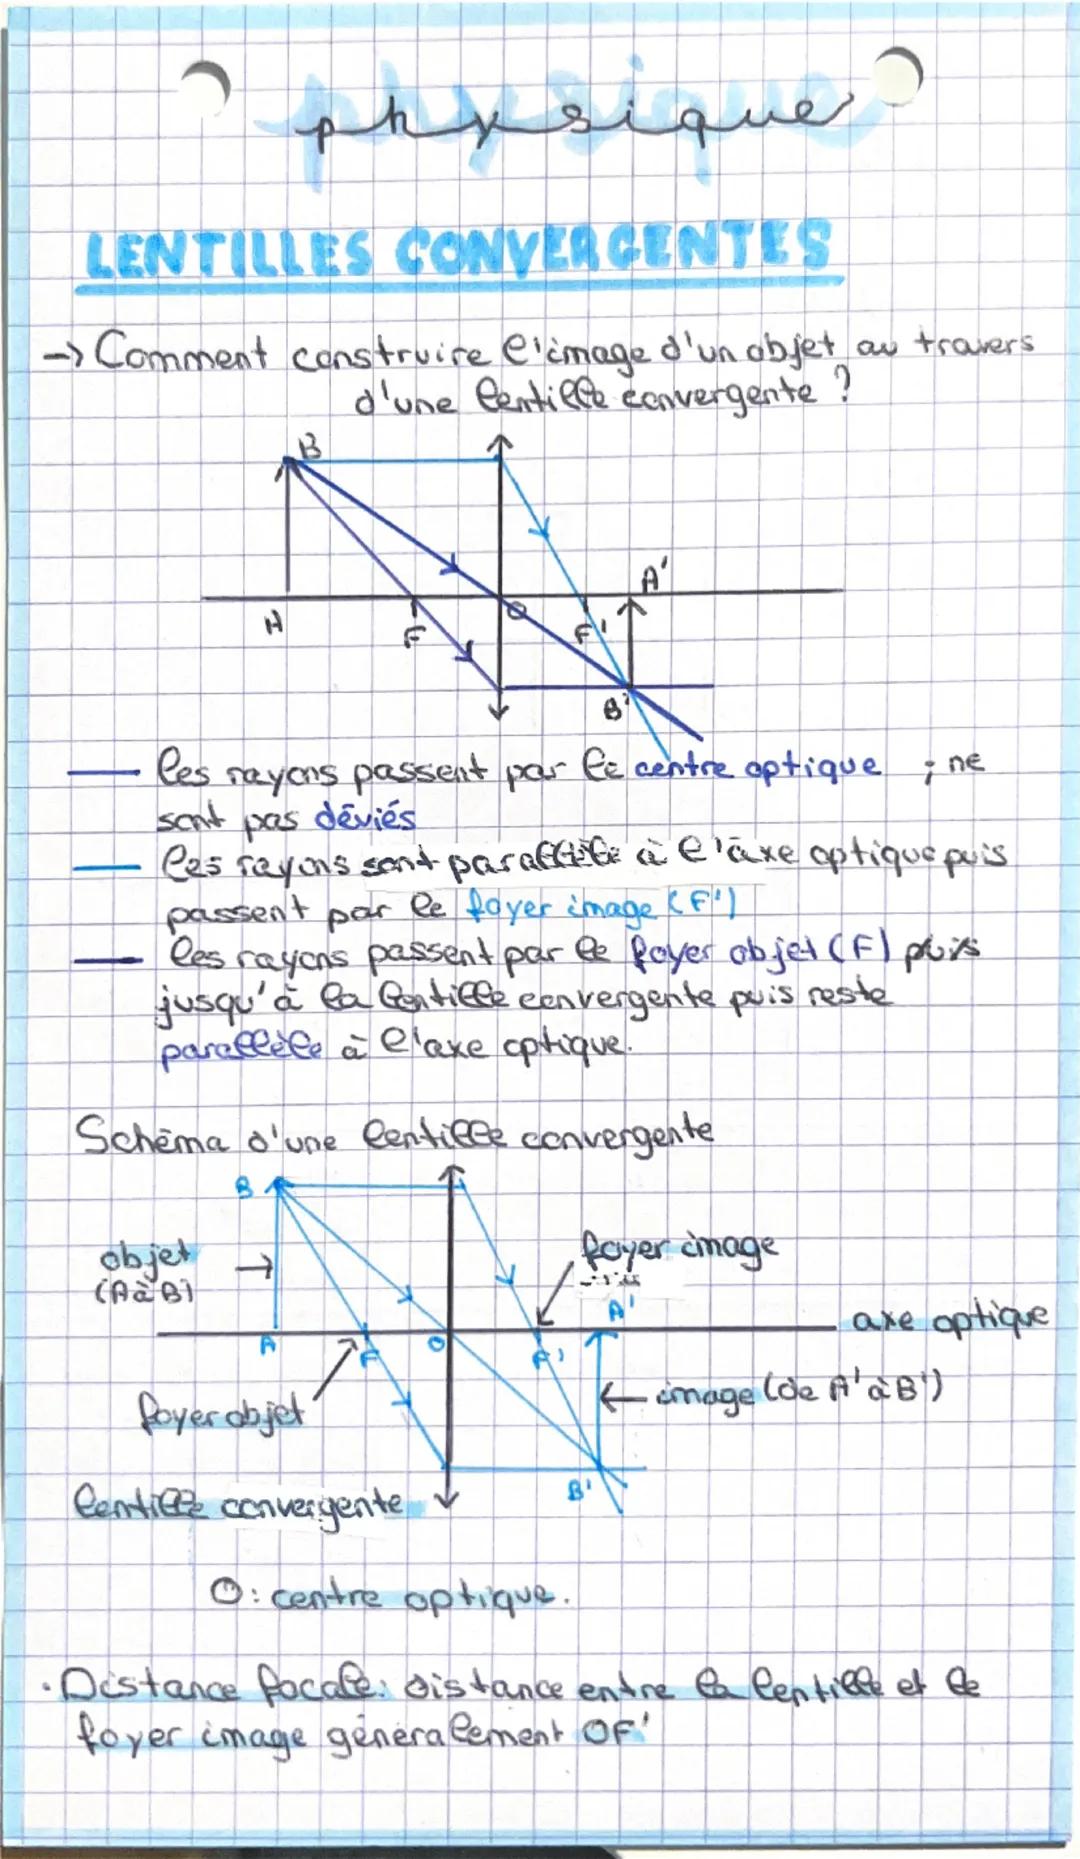 physique
LENTILLES CONVERGENTES
-> Comment construire l'image d'un objet au travers
d'une lentille convergente ?
B
A'
H
F
O
F'
B'
les rayons passent par le centre optique ; ne
sont pas déviés
les rayons sont parallèle à l'axe optique puis
passent par le foyer image (F')
les rayons passent par le foyer objet (F) puis
jusqu'à la lentille convergente puis reste
parallèle à l'axe optique.
Schéma d'une lentille convergente
B
objet
(A à B)
foyer image
A'
axe optique
A
F
O
F'
image (de A' à B')
foyer objet
B'
lentille convergente
O: centre optique.
· Distance focale: distance entre la lentille et le
foyer image généralement OF'